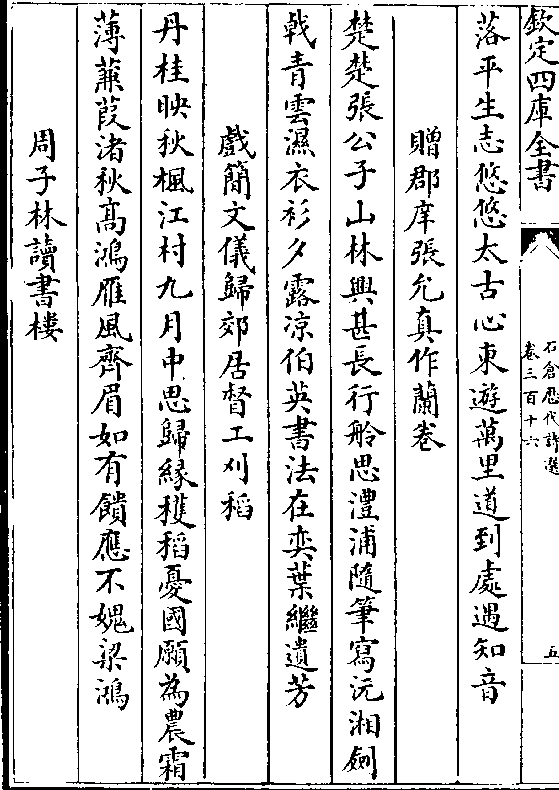 欽定四庫全書
石倉歷代詩選
卷三百十六
五
落平生志悠悠太古心東遊萬里道到處遇知音
贈郡庠張允真作蘭卷
楚楚張公子山林興甚長行舲思澧浦隨筆寫沅湘劍
㦸青雲濕衣衫夕露凉伯英書法在奕葉繼遺芳
戲簡文儀歸郊居督工刈稻
丹桂映秋楓江村九月中思歸緣穫稻憂國願為農霜
薄蒹葭渚秋髙鴻雁風齊眉如有饋應不媿梁鴻
周子林讀書樓